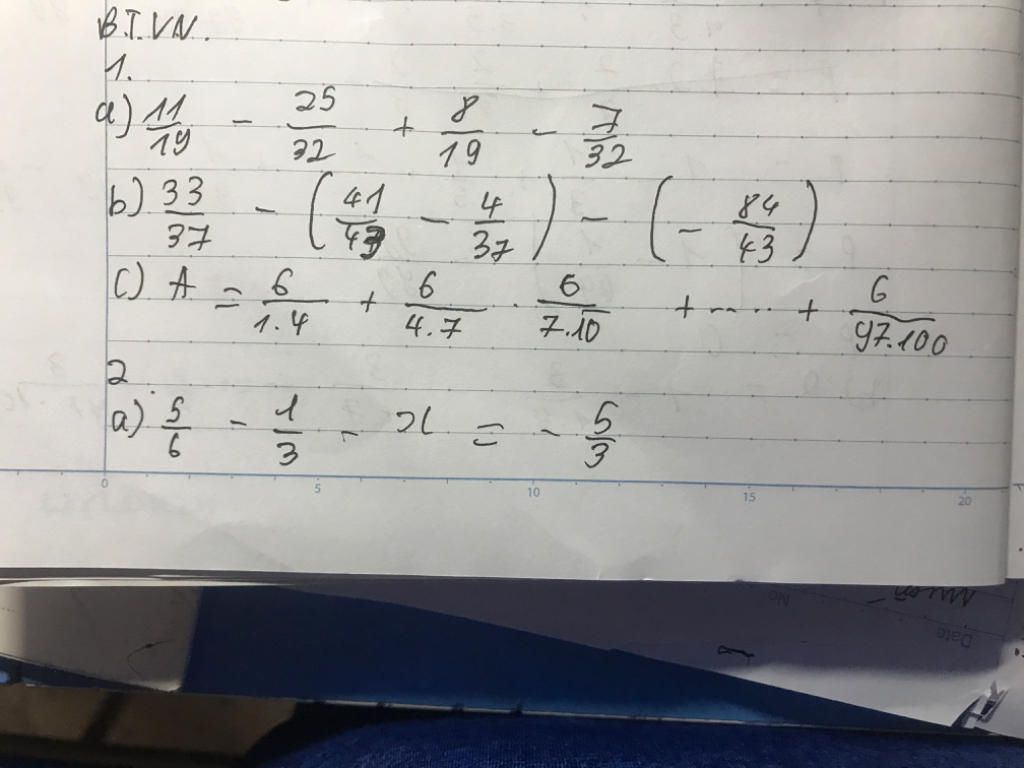 B.T.VN.
1.
a) 11/19 - 25/32 + 8/19 - 7/32
b) 33/37 - (41/43 - 4/37) - (- 84/43)
c) A = 6/1.4 + 6/4.7 . 6/7.10 + ..... + 6/97.100
2.
a) 5/6 - 1/3 - x = - 5/3
0 5 10 15 20
No
Date